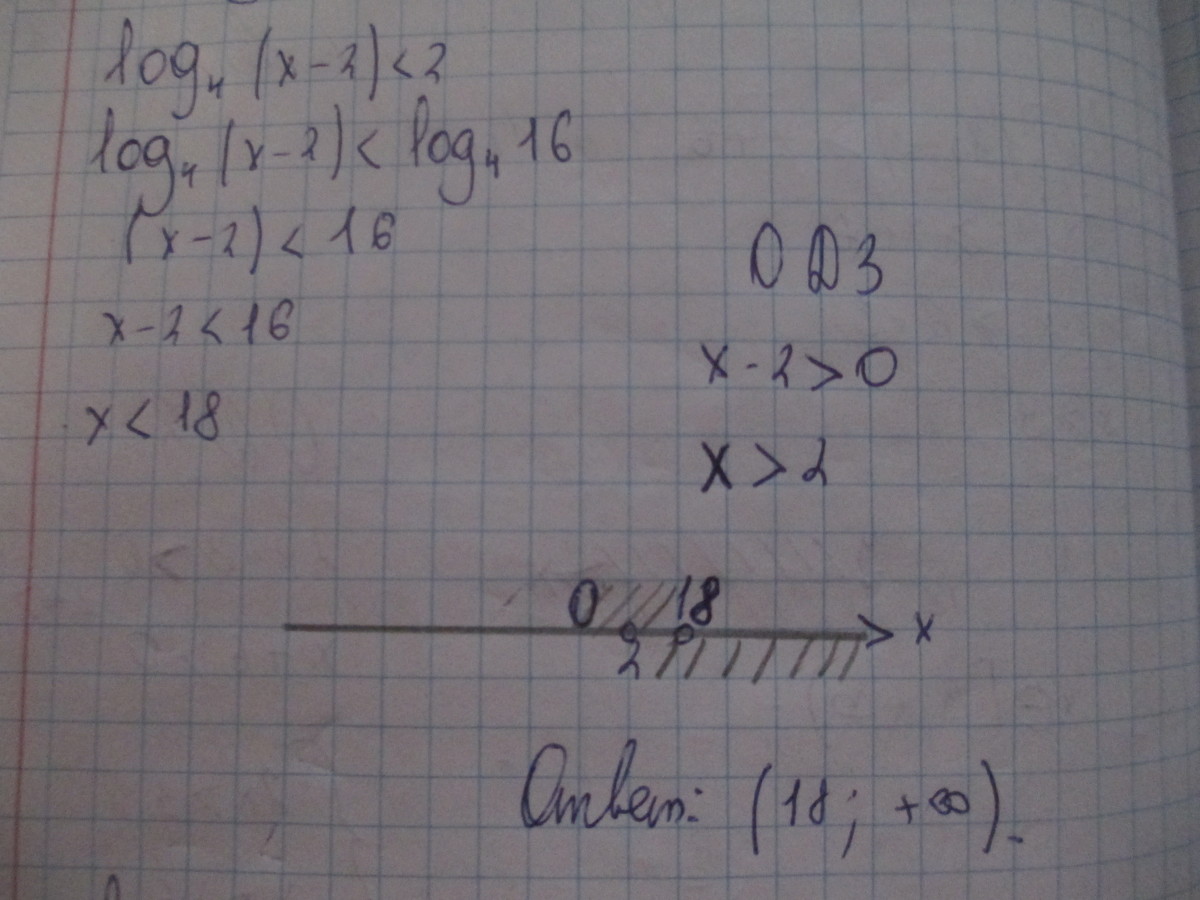 log₄ (x-2) < 2
log₄ (x-2) < log₄ 16
(x-2) < 16
x-2 < 16
x < 18
ОДЗ
x-2 > 0
x > 2
0 18
2
x
Ответ: (18; +∞).